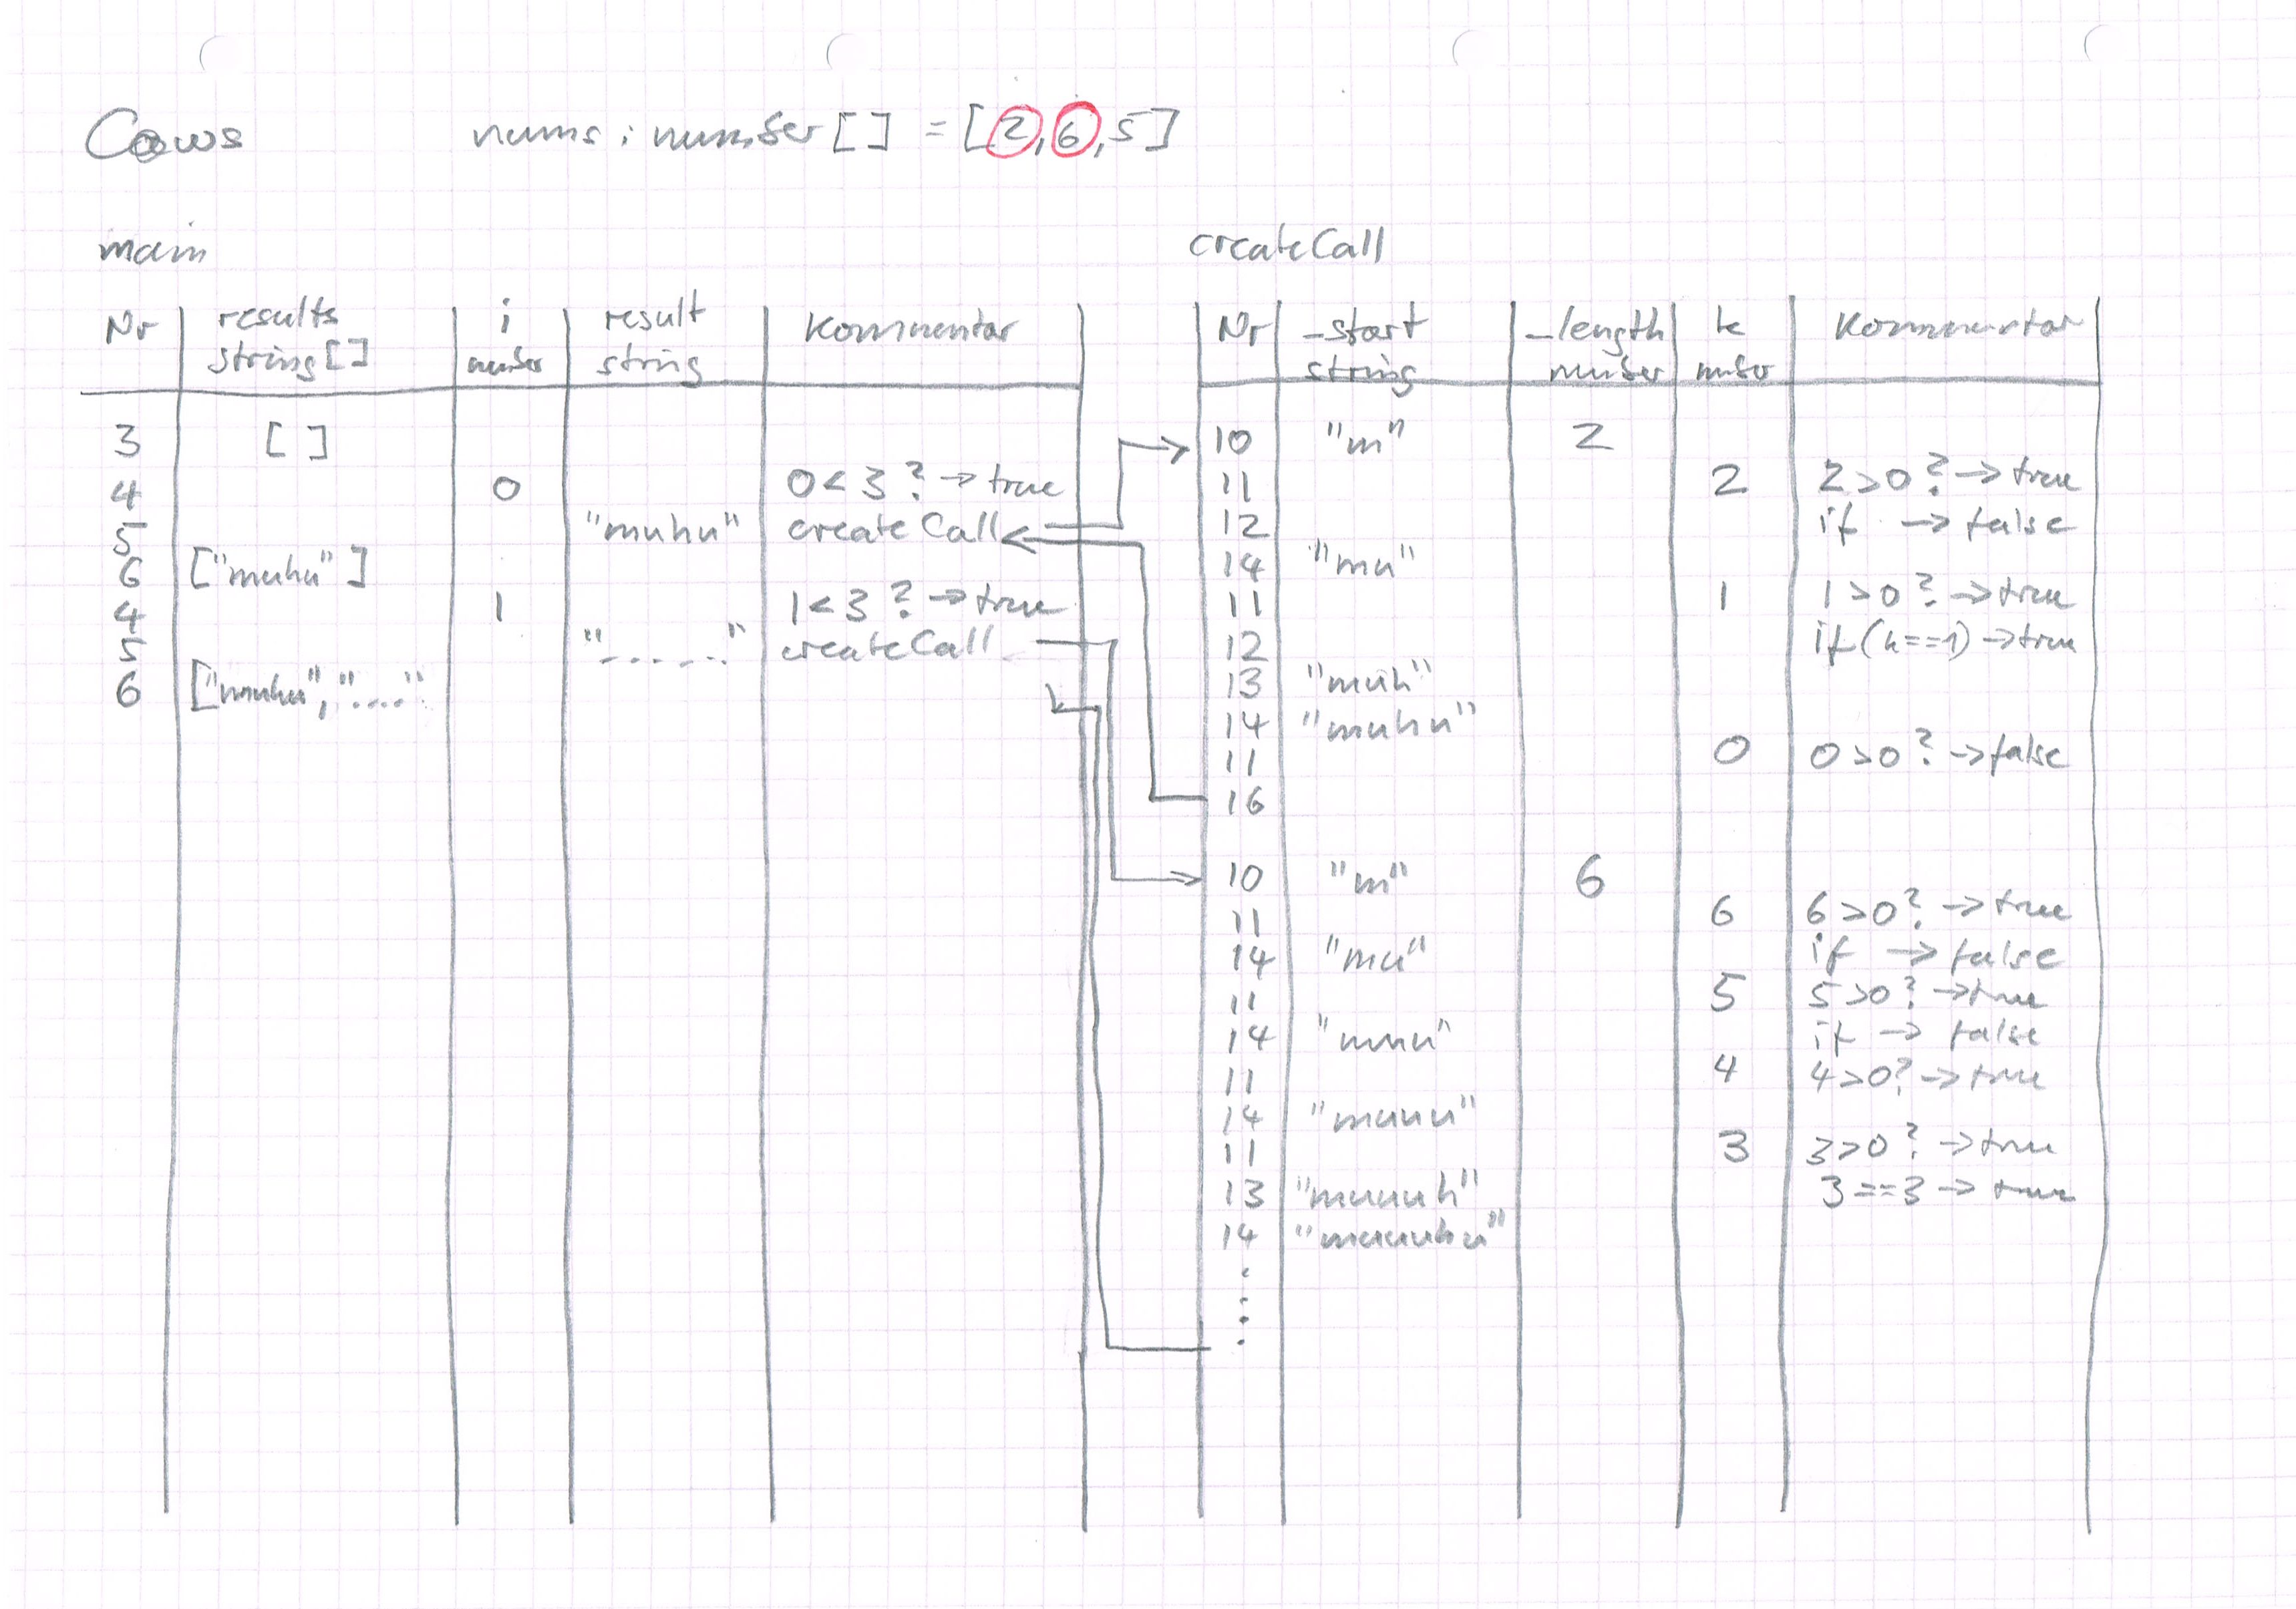 Cows nums: number[] = [2,6,5]
main
Nr results string[] i number result string Kommentar
3 []
4 0 0<3? → true
5 "muhu" createCall
6 ["muhu"]
4 1 1<3? → true
5 "......" createCall
6 ["muhu", "...."
createCall
Nr _start string _length number k number Kommentar
10 "m" 2
11 2 2>0? → true
12 if → false
14 "mu"
11 1 1>0? → true
12 if(k==1) → true
13 "muh"
14 "muhu"
11 0 0>0? → false
16
10 "m" 6
11 6 6>0? → true
14 "mu" if → false
11 5 5>0? → true
14 "muu" if → false
11 4 4>0? → true
14 "muuu"
11 3 3>0? → true
13 "muuuh" 3==3 → true
14 "muuuhu"